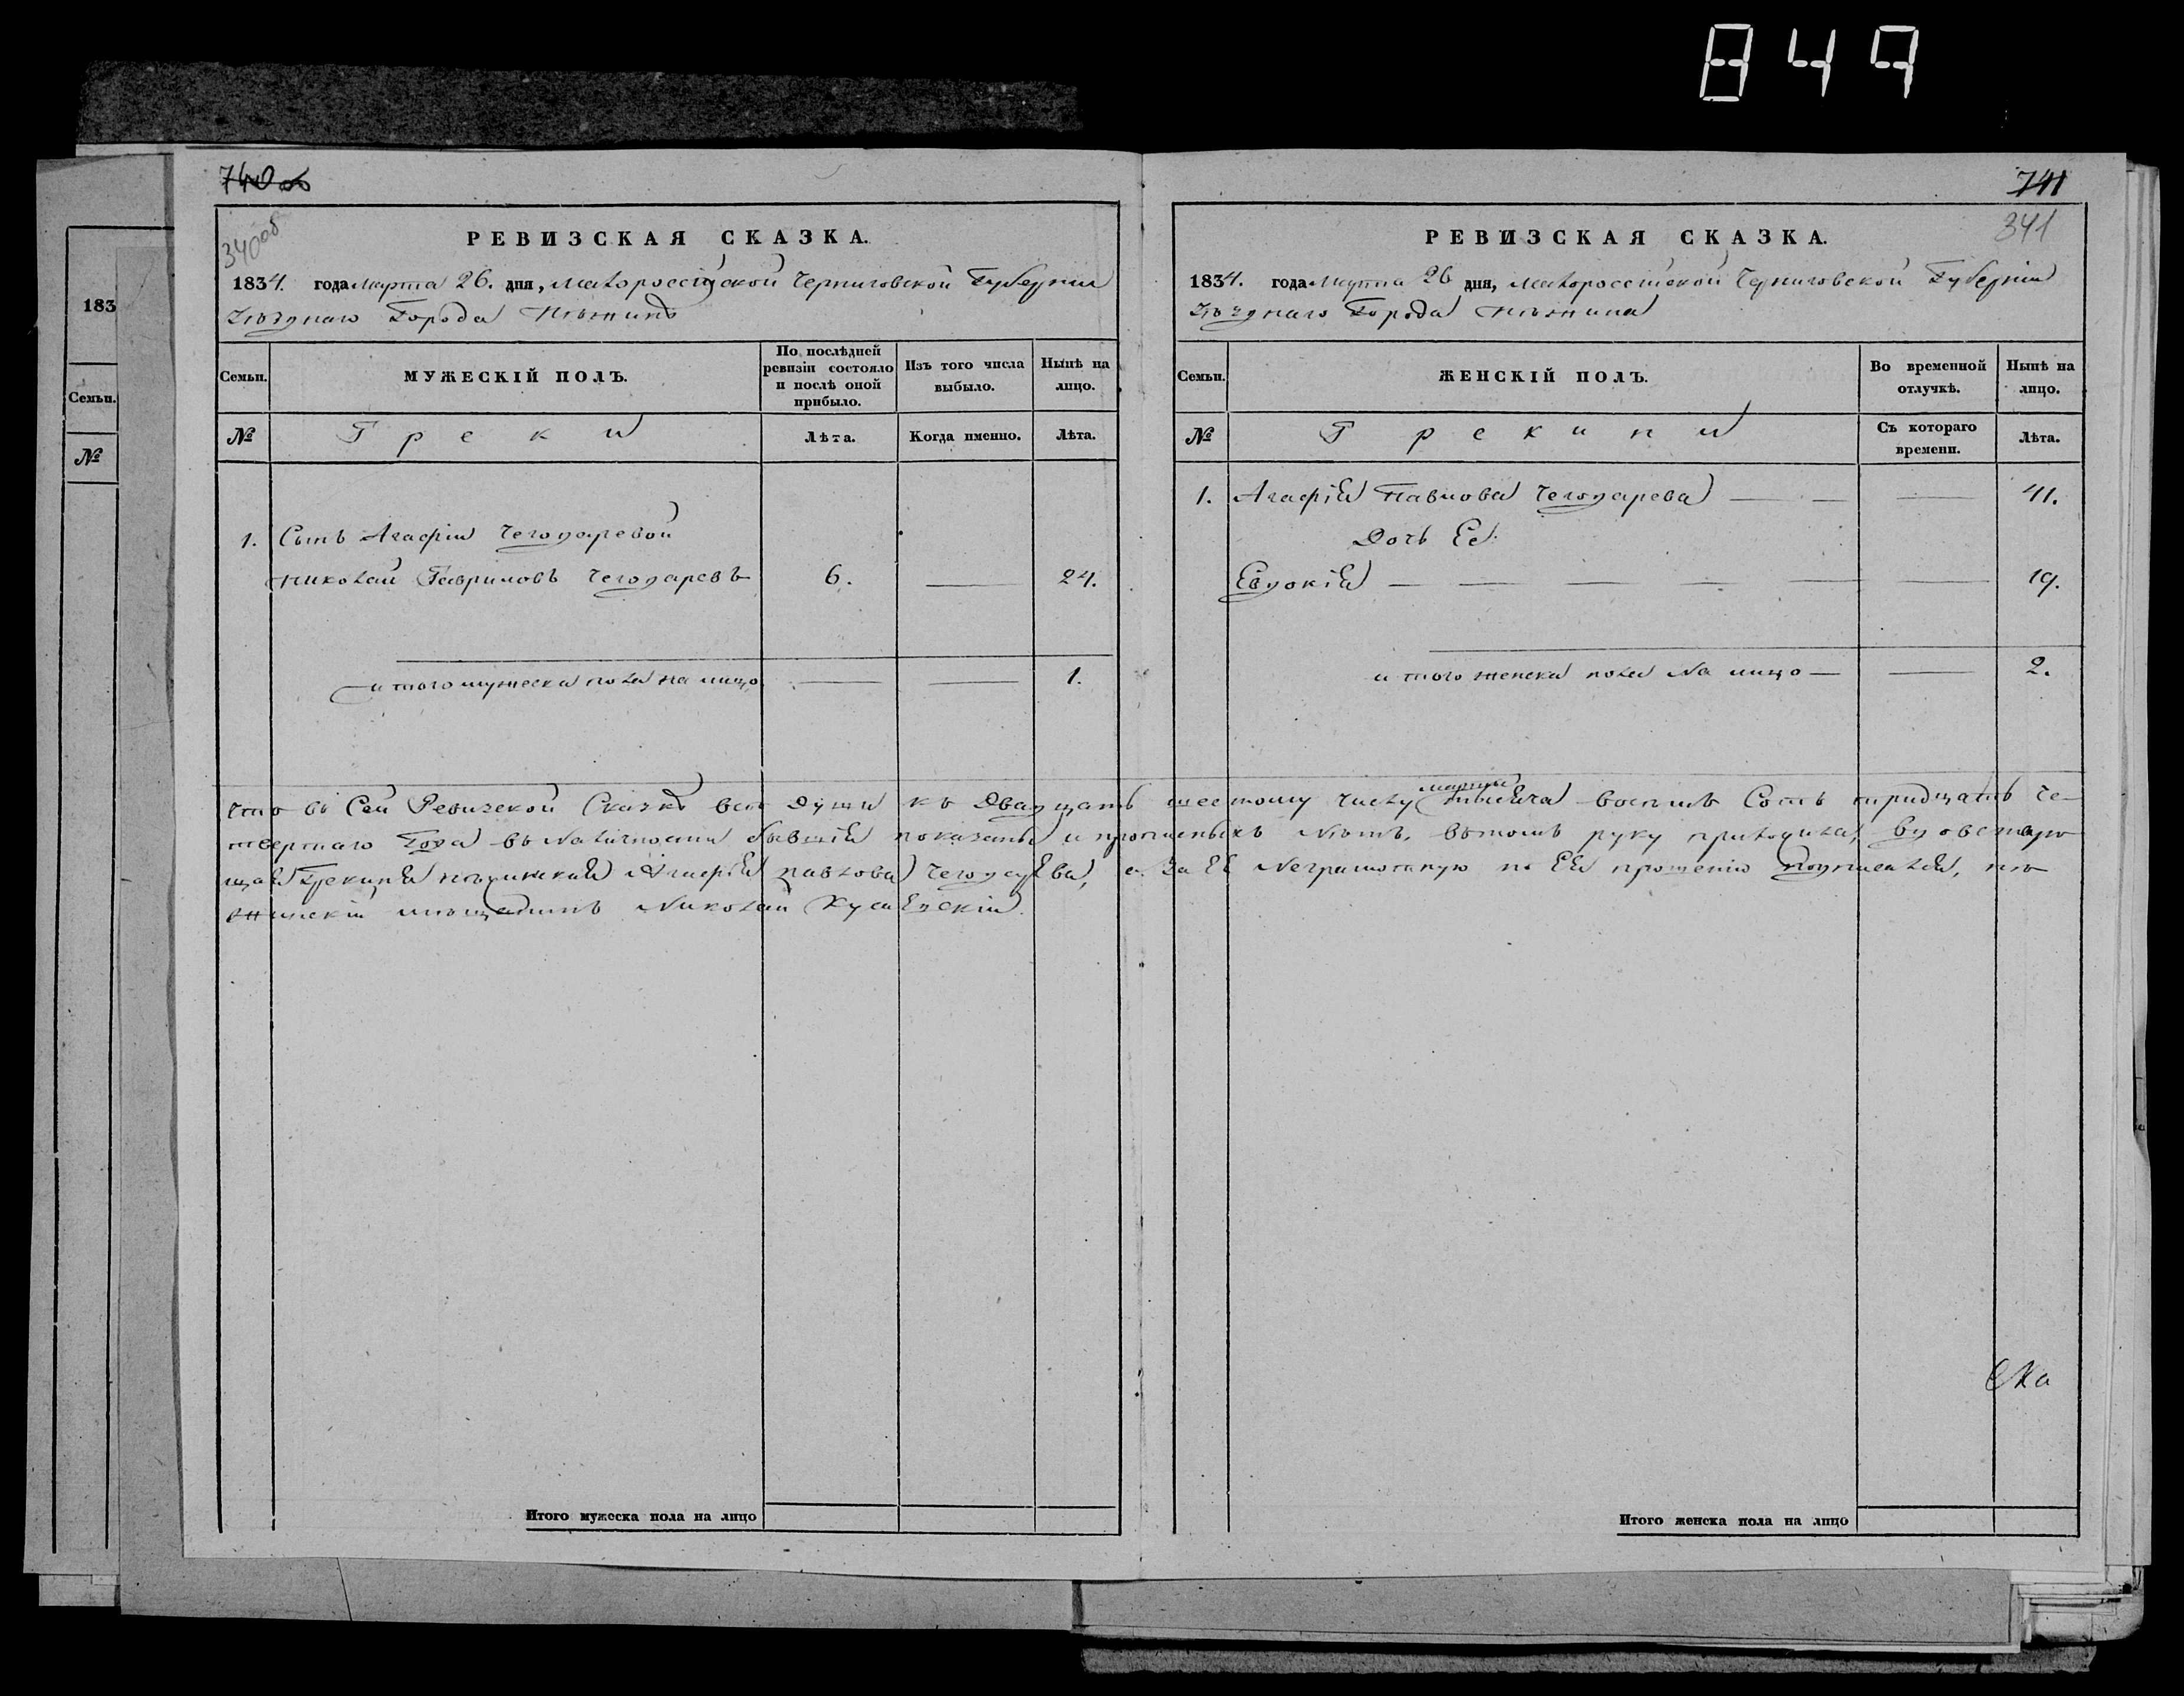 849
740 об
340 об
РЕВИЗСКАЯ СКАЗКА.
1834. года Марта 26. дня, Малороссійской Черниговской Губерніи
Уѣзднаго Города Нѣжина
Семьи. МУЖЕСКІЙ ПОЛЪ. По послѣдней ревизіи состояло и послѣ оной прибыло. Изъ того числа выбыло. Нынѣ на лицо.
№ Греки Лѣта. Когда именно. Лѣта.
1. Сынъ Агафіи Чегодаревой
Николай Гавриловъ Чегодаревъ 6. — 24.
и того мужеска пола на лицо — — 1.
Итого мужеска пола на лицо
741
341
РЕВИЗСКАЯ СКАЗКА.
1834. года Марта 26 дня, Малороссійской Черниговской Губерніи
Уѣзднаго Города Нѣжина
Семьи. ЖЕНСКІЙ ПОЛЪ. Во временной отлучкѣ. Нынѣ на лицо.
№ Грекини Съ котораго времени. Лѣта.
1. Агафія Павлова Чегодарева — — — 41.
Дочь Ее.
Евдокія — — — — — 19.
и того женска пола на лицо — — 2.
Что въ Сей Ревизской Сказкѣ всѣ души къ двадцать шестому числу марта тысяча восемь Сотъ тридцать че-
твертаго Года въ наличности бывшія показаны и прописныхъ нѣтъ, въ томъ руку приложила,
Грекиня нѣжинская Агафія Павлова Чегодарева, а За Ее Неграмотную по Ея прошенію подписался, нѣ
жинскій мѣщанинъ Николай
Итого женска пола на лицо
183
Семьи.
№